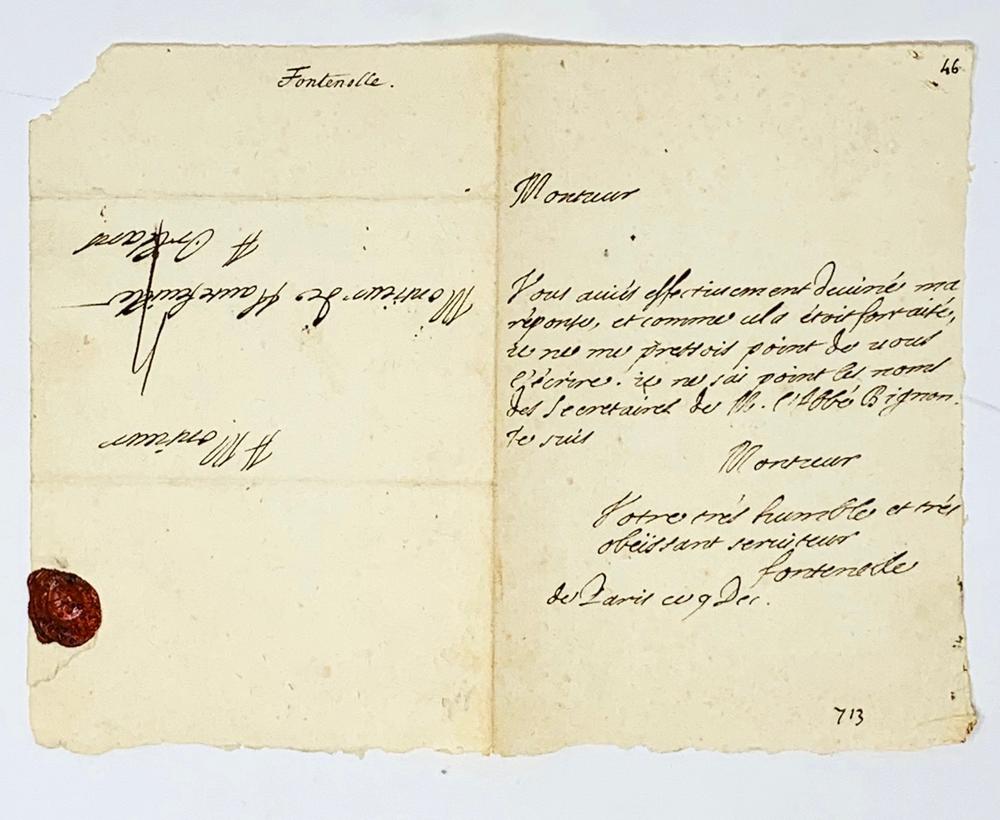 Fontenelle.
A Monsieur
Monsieur de Hautefeuille
A Orleans
46
Monsieur
Vous aviés effectivement deviné ma
réponse, et comme cela étoit fort aisé,
ie ne me pressois point de vous
l'écrire. ie ne sai point les noms
des secretaires de M. l'Abbé Bignon.
Je suis
Monsieur
Votre trés humble et trés
obëissant serviteur
fontenelle
de Paris ce 9 Dec.
713